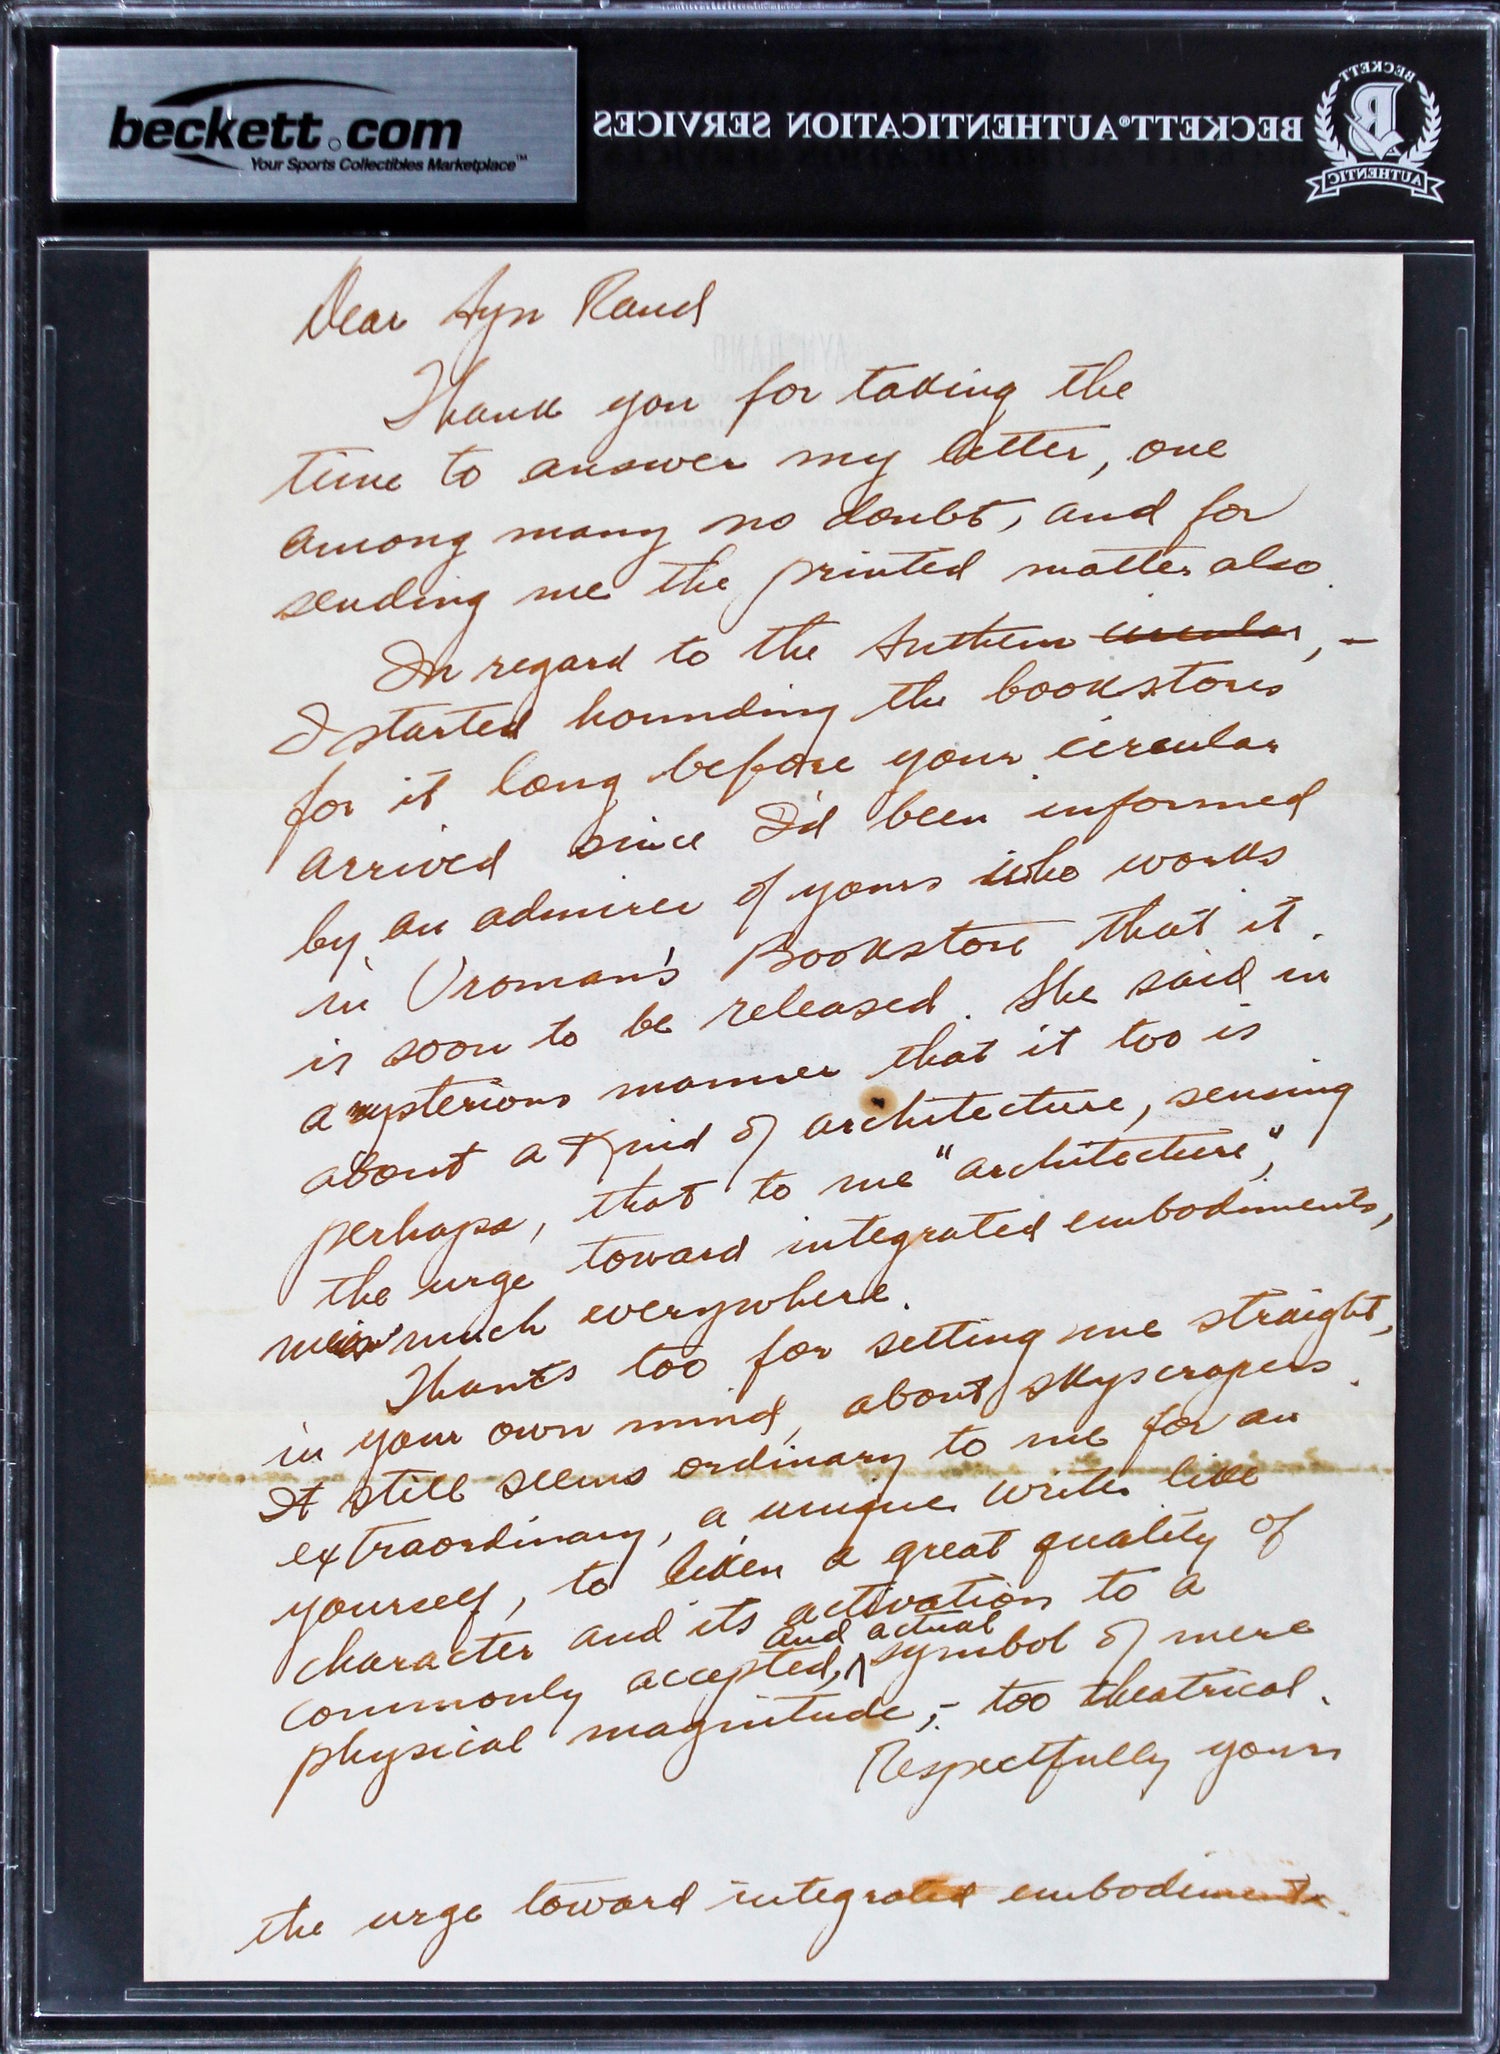 beckett.com
Your Sports Collectibles Marketplace™
BECKETT® AUTHENTICATION SERVICES
BECKETT
B
AUTHENTIC
AYN RAND
Dear Ayn Rand
Thank you for taking the
time to answer my letter, one
among many no doubt, and for
sending me the printed matter also.
In regard to the Anthem circular, –
I started hounding the bookstores
for it long before your circular
arrived since I'd been informed
by an admirer of yours who works
in Vroman's Bookstore that it
is soon to be released. She said in
a mysterious manner that it too is
about a kind of architecture, sensing
perhaps, that to me "architecture",
the urge toward integrated embodiments,
much everywhere.
Thanks too for setting me straight,
in your own mind, about skyscrapers.
It still seems ordinary to me for an
extraordinary, a unique writer like
yourself, to liken a great quality of
character and its activation to a
commonly accepted, and actual symbol of mere
physical magnitude, – too theatrical.
Respectfully yours
the urge toward integrated embodiments.